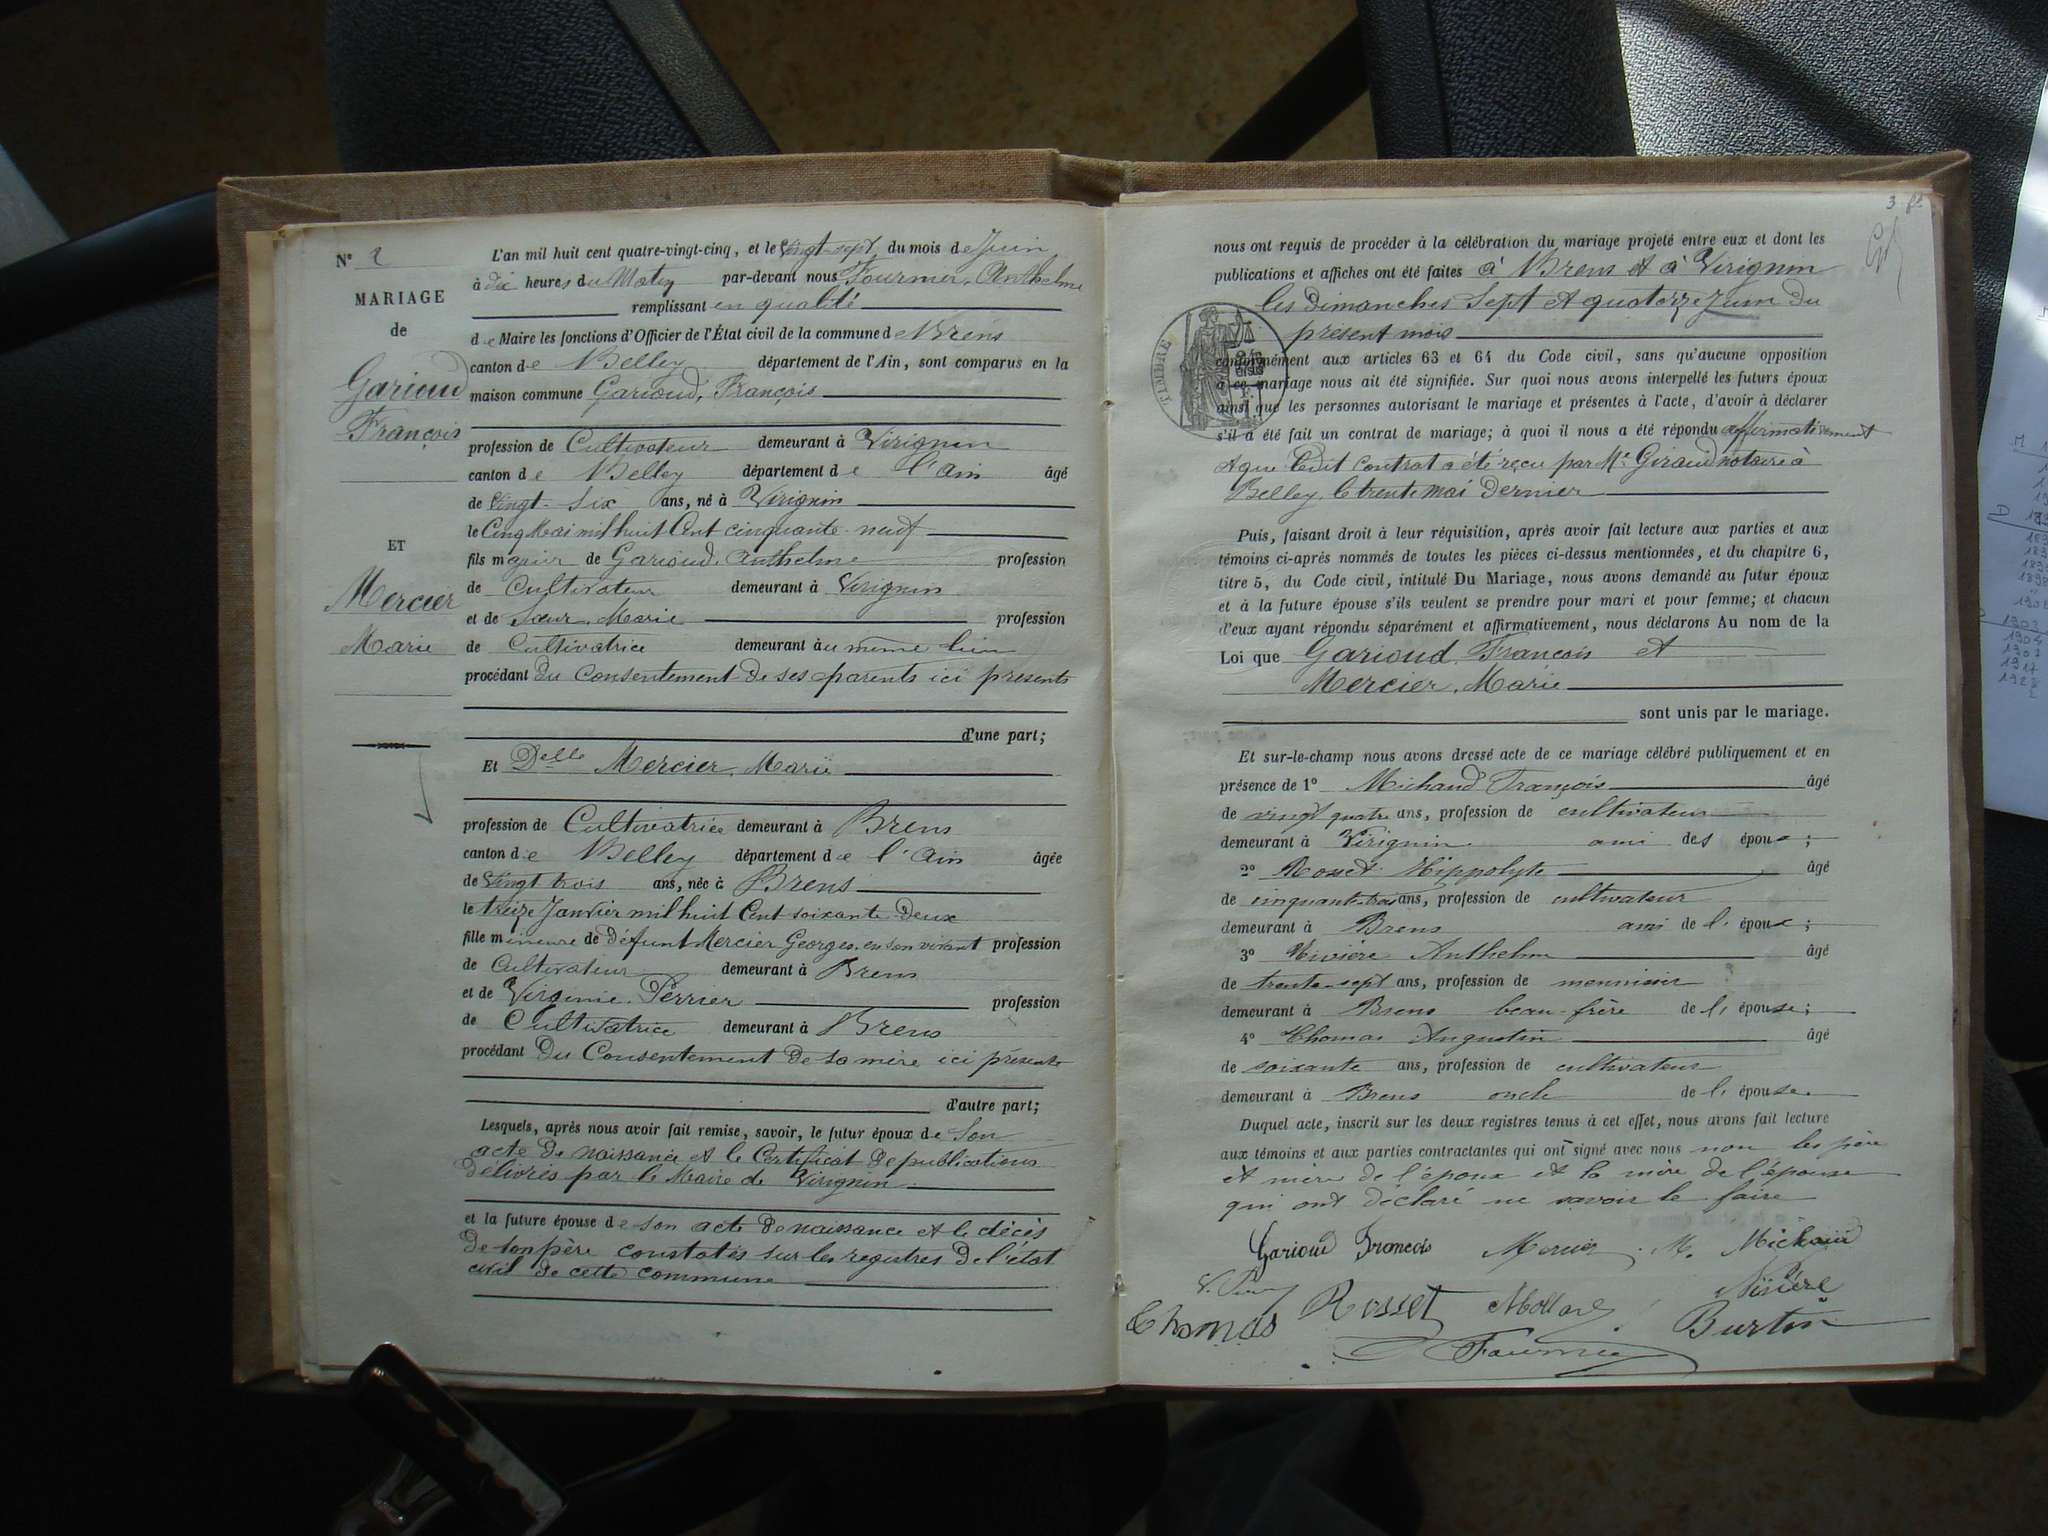 Nº 2
MARIAGE
de
Garioud
François
ET
Mercier
Marie
L'an mil huit cent quatre-vingt-cinq, et le vingt-sept du mois de Juin
à dix heures du Matin par-devant nous Fournier, Anthelme
remplissant en qualité
de Maire les fonctions d'Officier de l'État civil de la commune de Brens
canton de Belley département de l'Ain, sont comparus en la
maison commune Garioud, François
profession de Cultivateur demeurant à Virignin
canton de Belley département de l'Ain âgé
de vingt-six ans, né à Virignin
le Cinq Mai mil huit Cent cinquante-neuf
fils majeur de Garioud, Anthelme profession
de Cultivateur demeurant à Virignin
et de Sœur, Marie profession
de Cultivatrice demeurant au même lieu
procédant Du Consentement De ses parents ici présents
d'une part;
Et Delle Mercier, Marie
profession de Cultivatrice demeurant à Brens
canton de Belley département de l'Ain âgée
de vingt trois ans, née à Brens
le treize Janvier mil huit Cent soixante-Deux
fille mineure de Défunt Mercier Georges, en son vivant profession
de Cultivateur demeurant à Brens
et de Virginie Perrier profession
de Cultivatrice demeurant à Brens
procédant Du Consentement De sa mère ici présente
d'autre part;
Lesquels, après nous avoir fait remise, savoir, le futur époux de Son
acte De naissance et le Certificat De publications
Délivrés par le Maire de Virignin
et la future épouse de son acte De naissance et le décès
De son père constatés sur les registres De l'état
civil de cette commune
3
nous ont requis de procéder à la célébration du mariage projeté entre eux et dont les
publications et affiches ont été faites à Brens et à Virignin
les Dimanches Sept et quatorze Juin Du
présent mois
TIMBRE
conformément aux articles 63 et 64 du Code civil, sans qu'aucune opposition
à ce mariage nous ait été signifiée. Sur quoi nous avons interpellé les futurs époux
ainsi que les personnes autorisant le mariage et présentes à l'acte, d'avoir à déclarer
s'il a été fait un contrat de mariage; à quoi il nous a été répondu affirmativement
et que ledit contrat a été reçu par Me Giraud notaire à
Belley, le trente Mai Dernier
Puis, faisant droit à leur réquisition, après avoir fait lecture aux parties et aux
témoins ci-après nommés de toutes les pièces ci-dessus mentionnées, et du chapitre 6,
titre 5, du Code civil, intitulé Du Mariage, nous avons demandé au futur époux
et à la future épouse s'ils veulent se prendre pour mari et pour femme; et chacun
d'eux ayant répondu séparément et affirmativement, nous déclarons Au nom de la
Loi que Garioud, François et
Mercier, Marie
sont unis par le mariage.
Et sur-le-champ nous avons dressé acte de ce mariage célébré publiquement et en
présence de 1º Michaud François âgé
de vingt quatre ans, profession de cultivateur
demeurant à Virignin ami des époux;
2º Rosset Hippolyte âgé
de cinquante-trois ans, profession de cultivateur
demeurant à Brens ami de l'époux;
3º Nivière Anthelme âgé
de trente-sept ans, profession de menuisier
demeurant à Brens beau-frère de l'épouse;
4º Thomas Augustin âgé
de soixante ans, profession de cultivateur
demeurant à Brens oncle de l'épouse.
Duquel acte, inscrit sur les deux registres tenus à cet effet, nous avons fait lecture
aux témoins et aux parties contractantes qui ont signé avec nous non les père
et mère de l'époux et la mère de l'épouse
qui ont déclaré ne savoir le faire
Garioud François Mercier M. Michaud
Nivière
Thomas Rosset Mollard Burtin
Fournier